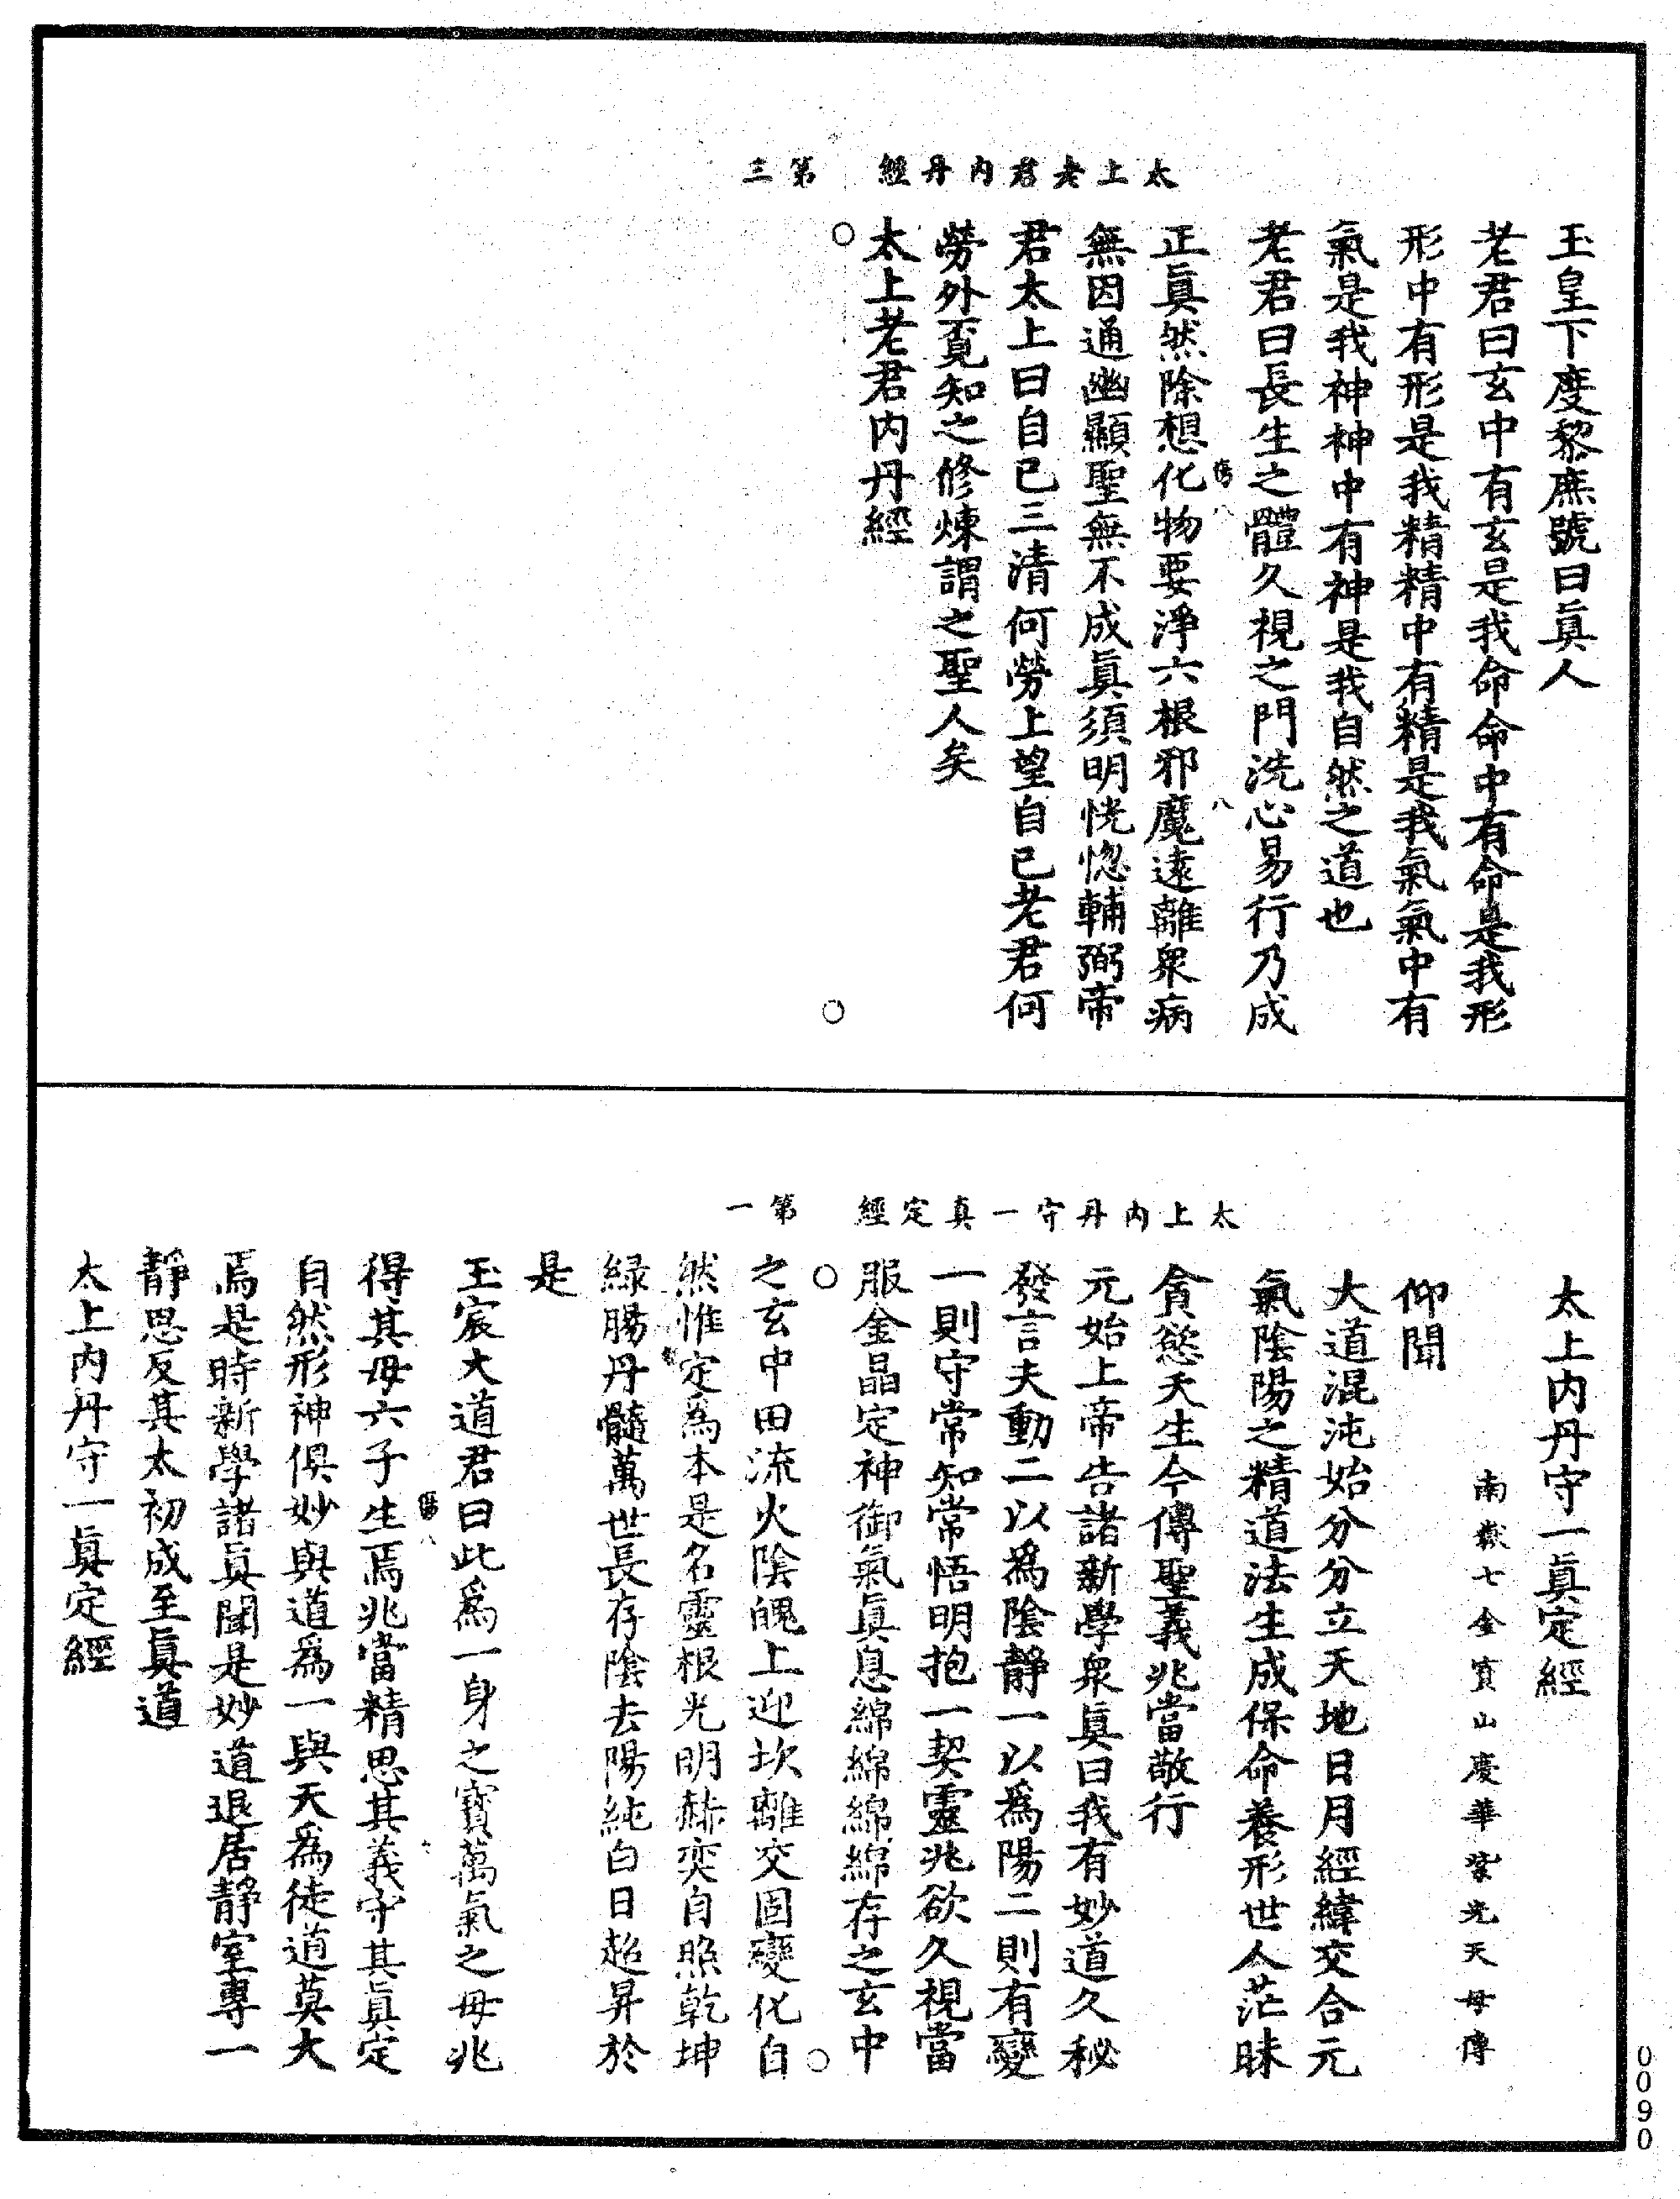 太上老君內丹經　第三
玉皇下度黎庶號曰眞人
老君曰玄中有玄是我命命中有命是我形
形中有形是我精精中有精是我氣氣中有
氣是我神神中有神是我自然之道也
老君曰長生之體久視之門洗心易行乃成
正眞然除想化物要淨六根邪魔遠離衆病
無因通幽顯聖無不成眞須明恍惚輔弼帝
君太上曰自已三清何勞上望自已老君何
勞外覓知之修煉謂之聖人矣
太上老君內丹經
太上內丹守一真定經　第一
太上內丹守一眞定經
南嶽七金寳山慶華紫光天母傳
仰聞
大道混沌始分分立天地日月經緯交合元
氣陰陽之精道法生成保命養形世人茫昧
貪慾天生今傳聖義兆當敬行
元始上帝告諸新學衆眞曰我有妙道久秘
發言夫動二以爲陰靜一以爲陽二則有變
一則守常知常悟明抱一契靈兆欲久視當
服金晶定神御氣眞息綿綿綿綿存之玄中
之玄中田流火陰魄上迎坎離交固變化自
然惟定爲本是名靈根光明赫奕自照乾坤
緑腸丹髓萬世長存陰去陽純白日超昇於
是
玉宸大道君曰此爲一身之寳萬氣之母兆
得其母六子生焉兆當精思其義守其眞定
自然形神俱妙與道爲一與天爲徒道莫大
焉是時新學諸眞聞是妙道退居靜室專一
靜思反其太初成至眞道
太上內丹守一眞定經
0090